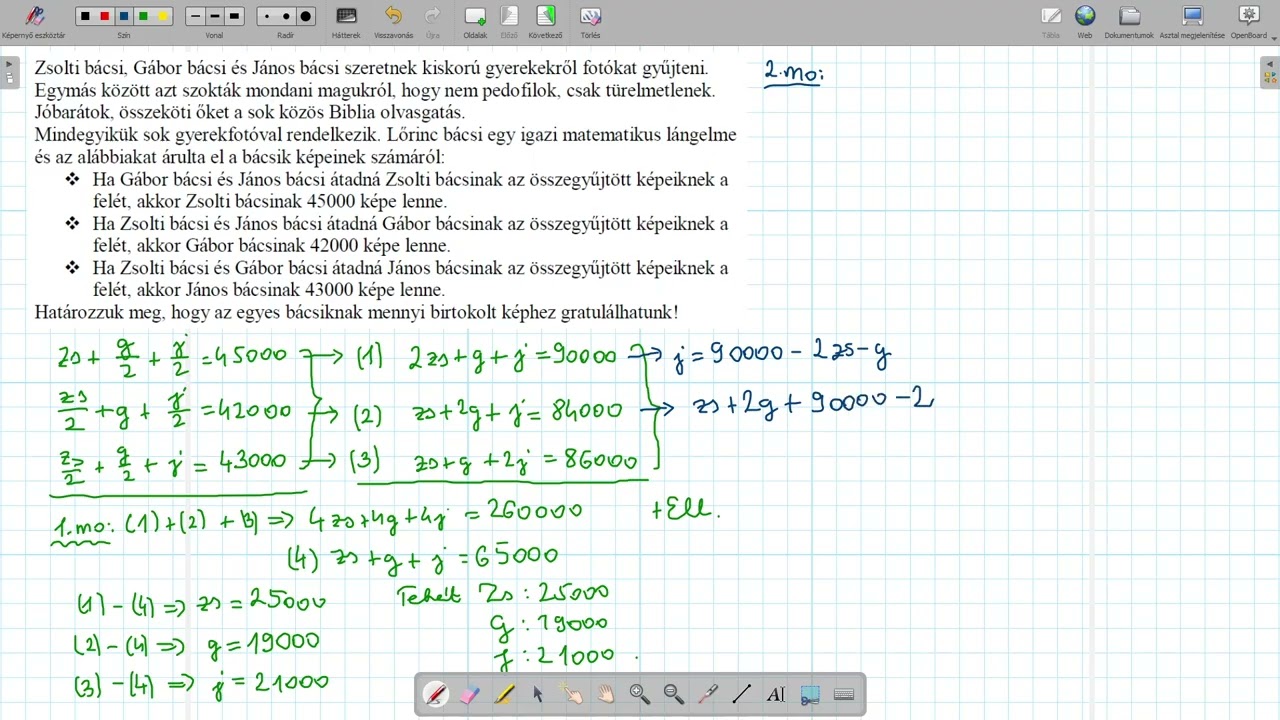 Képernyő eszköztár Szín Vonal Radír Hátterek Visszavonás Újra Oldalak Előző Következő Törlés Tábla Web Dokumentumok Asztal megjelenítése OpenBoard
Zsolti bácsi, Gábor bácsi és János bácsi szeretnek kiskorú gyerekekről fotókat gyűjteni.
Egymás között azt szokták mondani magukról, hogy nem pedofilok, csak türelmetlenek.
Jóbarátok, összeköti őket a sok közös Biblia olvasgatás.
Mindegyikük sok gyerekfotóval rendelkezik. Lőrinc bácsi egy igazi matematikus lángelme
és az alábbiakat árulta el a bácsik képeinek számáról:
❖ Ha Gábor bácsi és János bácsi átadná Zsolti bácsinak az összegyűjtött képeiknek a
felét, akkor Zsolti bácsinak 45000 képe lenne.
❖ Ha Zsolti bácsi és János bácsi átadná Gábor bácsinak az összegyűjtött képeiknek a
felét, akkor Gábor bácsinak 42000 képe lenne.
❖ Ha Zsolti bácsi és Gábor bácsi átadná János bácsinak az összegyűjtött képeiknek a
felét, akkor János bácsinak 43000 képe lenne.
Határozzuk meg, hogy az egyes bácsiknak mennyi birtokolt képhez gratulálhatunk!
2.mo:
zs + g/2 + j/2 = 45000 → (1) 2zs + g + j = 90000 → j = 90000 - 2zs - g
zs/2 + g + j/2 = 42000 → (2) zs + 2g + j = 84000 → zs + 2g + 90000 - 2
zs/2 + g/2 + j = 43000 → (3) zs + g + 2j = 86000
1.mo: (1) + (2) + (3) ⇒ 4zs + 4g + 4j = 260000 + Ell.
(4) zs + g + j = 65000
(1) - (4) ⇒ zs = 25000
(2) - (4) ⇒ g = 19000
(3) - (4) ⇒ j = 21000
Tehát Zs : 25000
G : 19000
J : 21000
AI